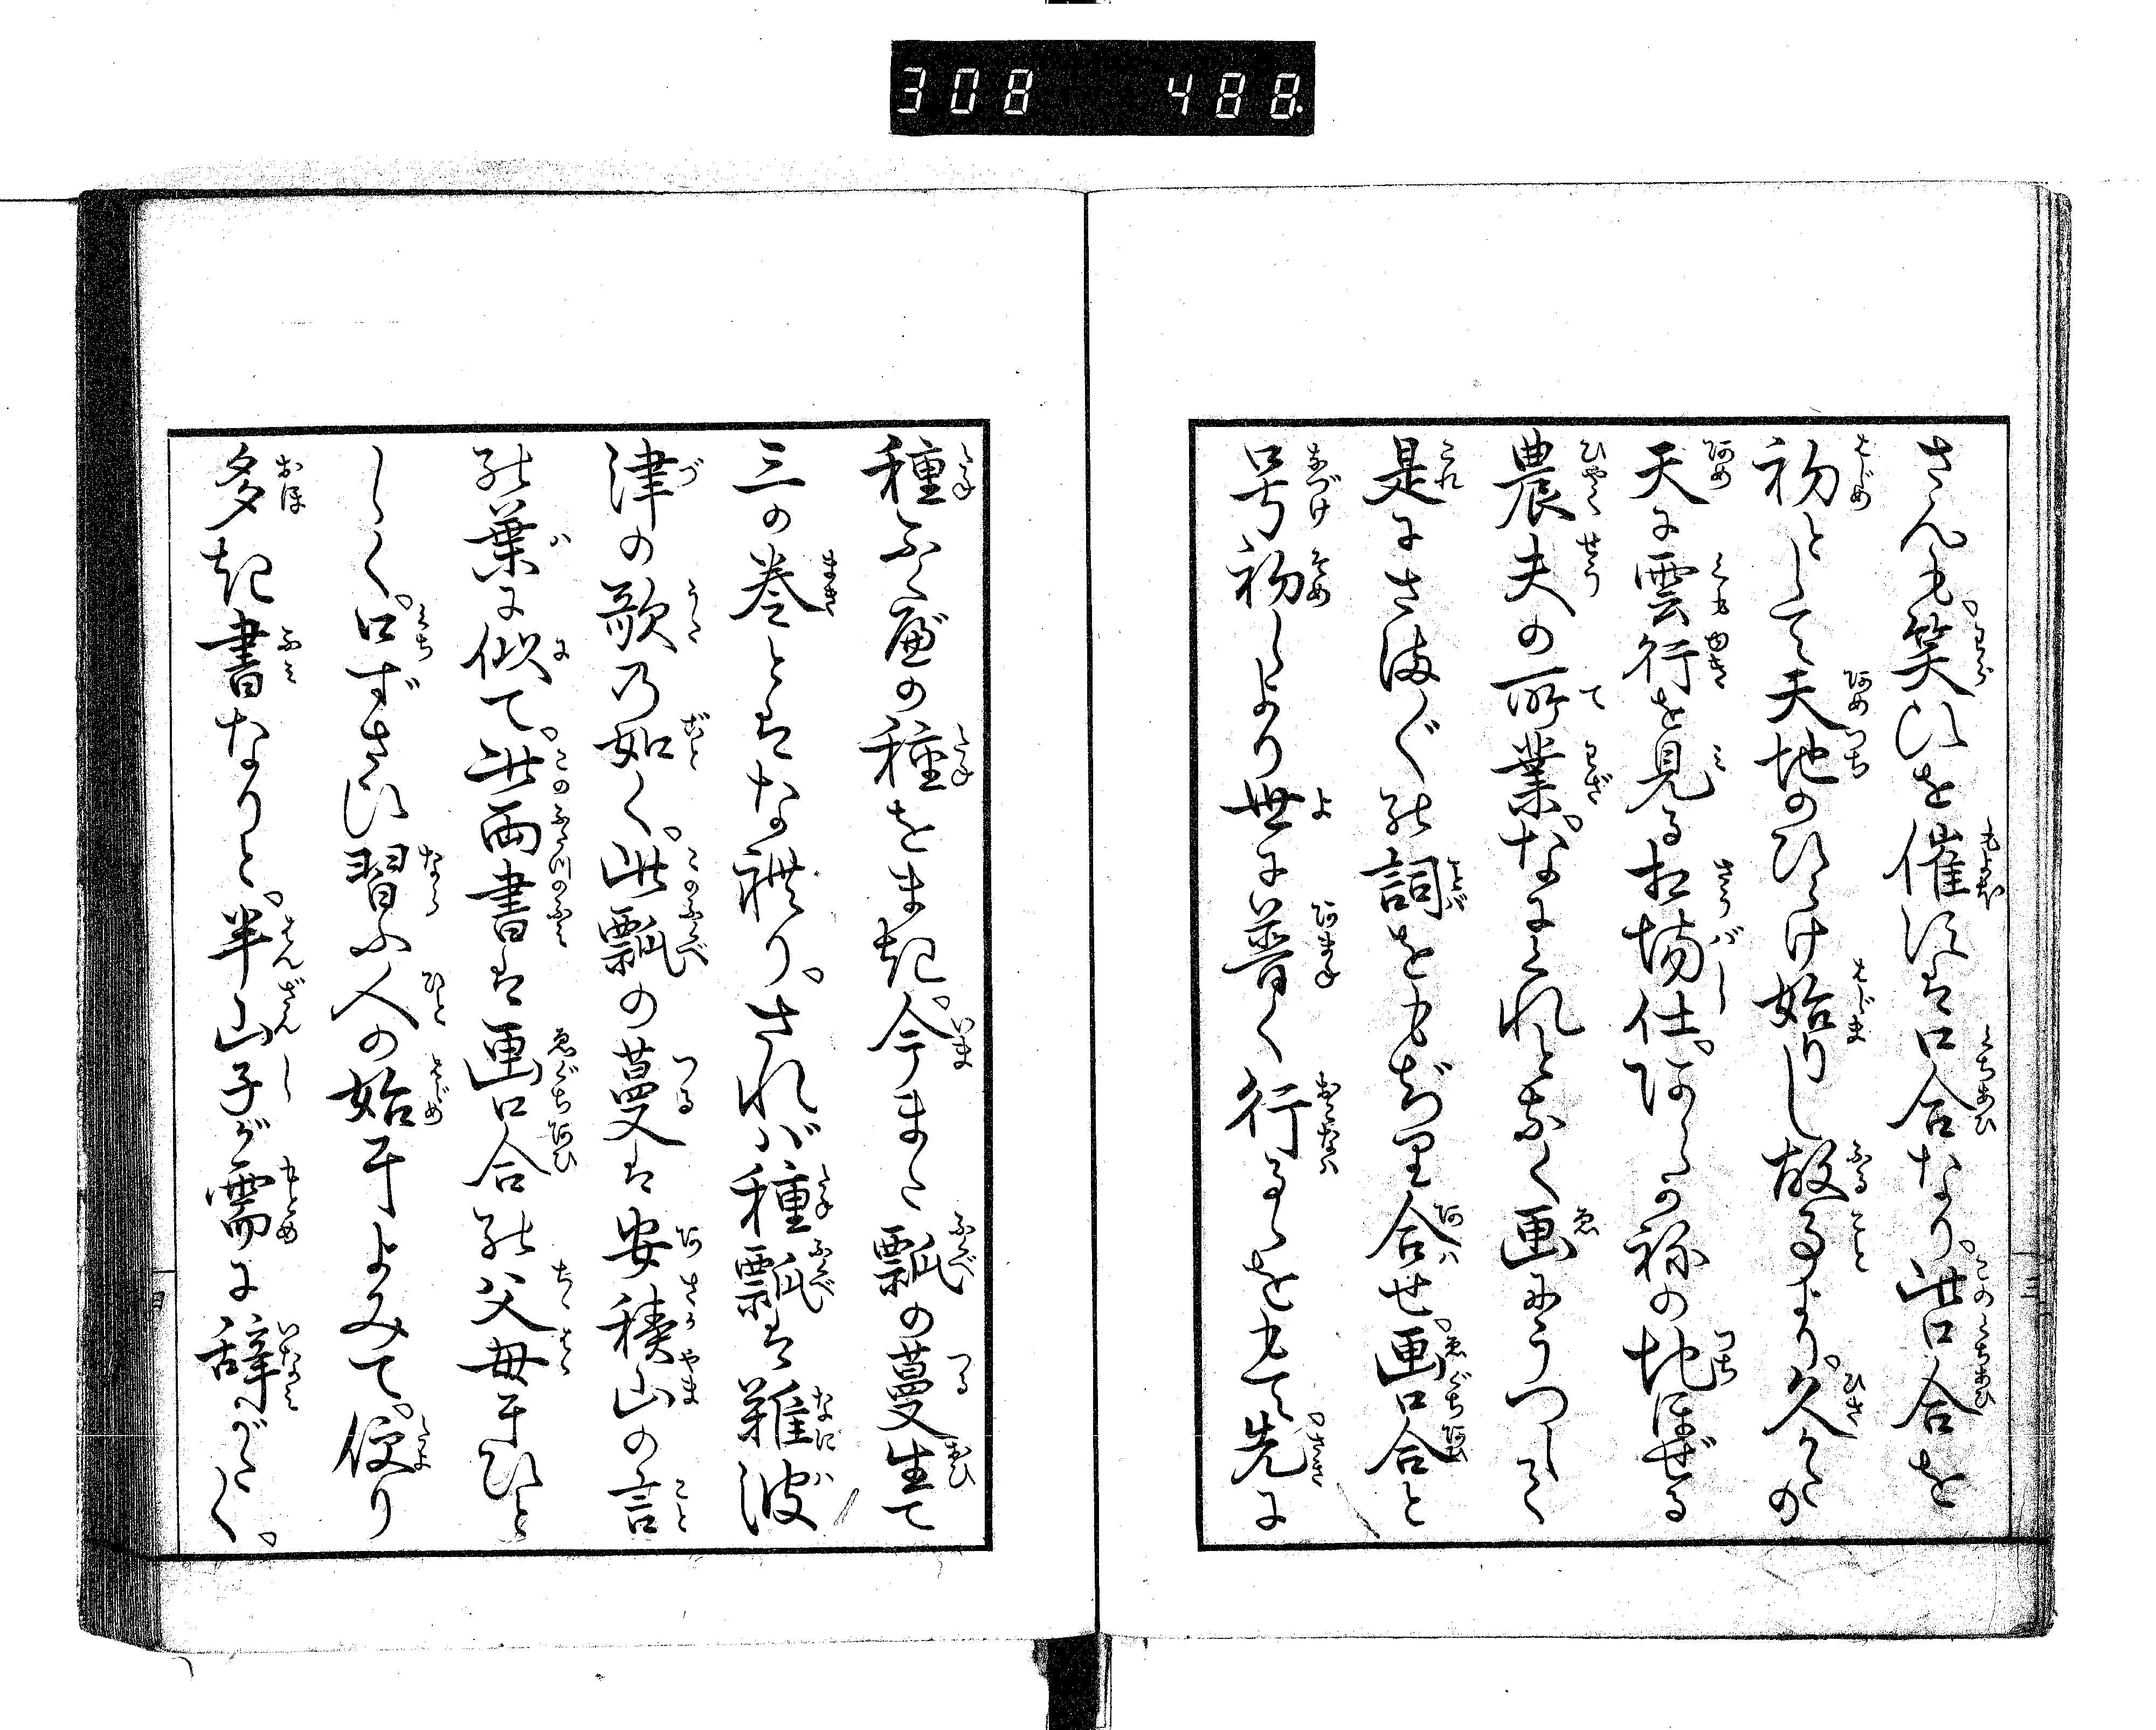 308 488
さんも。笑ひを催すは口合なり。此口合を
初として天地のひらけ始りし故事より。久かたの
天に雲行を見る相場仕。あらかねの地ほぜる
農夫の所業。なにくれとなく画にうつして
是にさまぐの詞をもぢり合せ。画口合と
号初しより世に普く行るゝをもて。先に
種ふくべの種をまき。今また瓢の蔓生て
三の巻とはなれり。されば種瓢は難波
津の歌の如く。此瓢の蔓は安積山の言
の葉に似て。此両書は画口合の父母にひと
しく。口ずさひ習ふ人の始によみて。便り
多き書なりと。半山子が需に辞がたく。